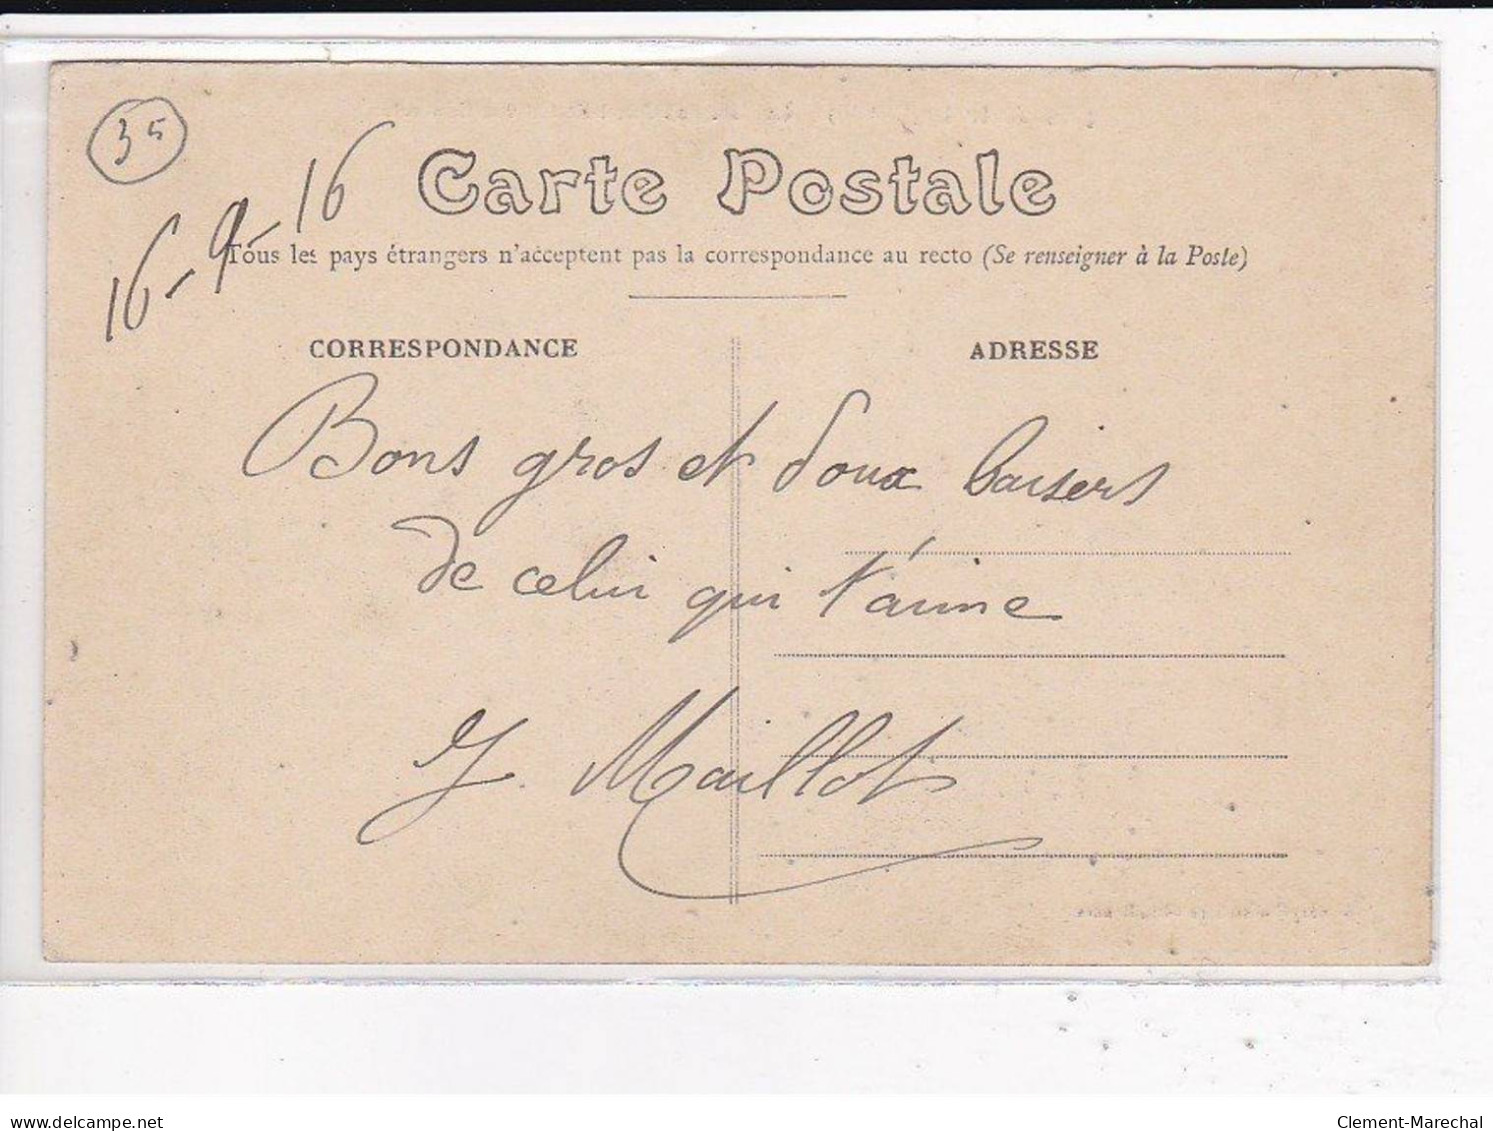 35
16-9-16
Carte Postale
Tous les pays étrangers n'acceptent pas la correspondance au recto (Se renseigner à la Poste)
CORRESPONDANCE
ADRESSE
Bons gros et doux baisers
de celui qui t'aime
J. Maillot
delcampe.net
Clement-Marechal